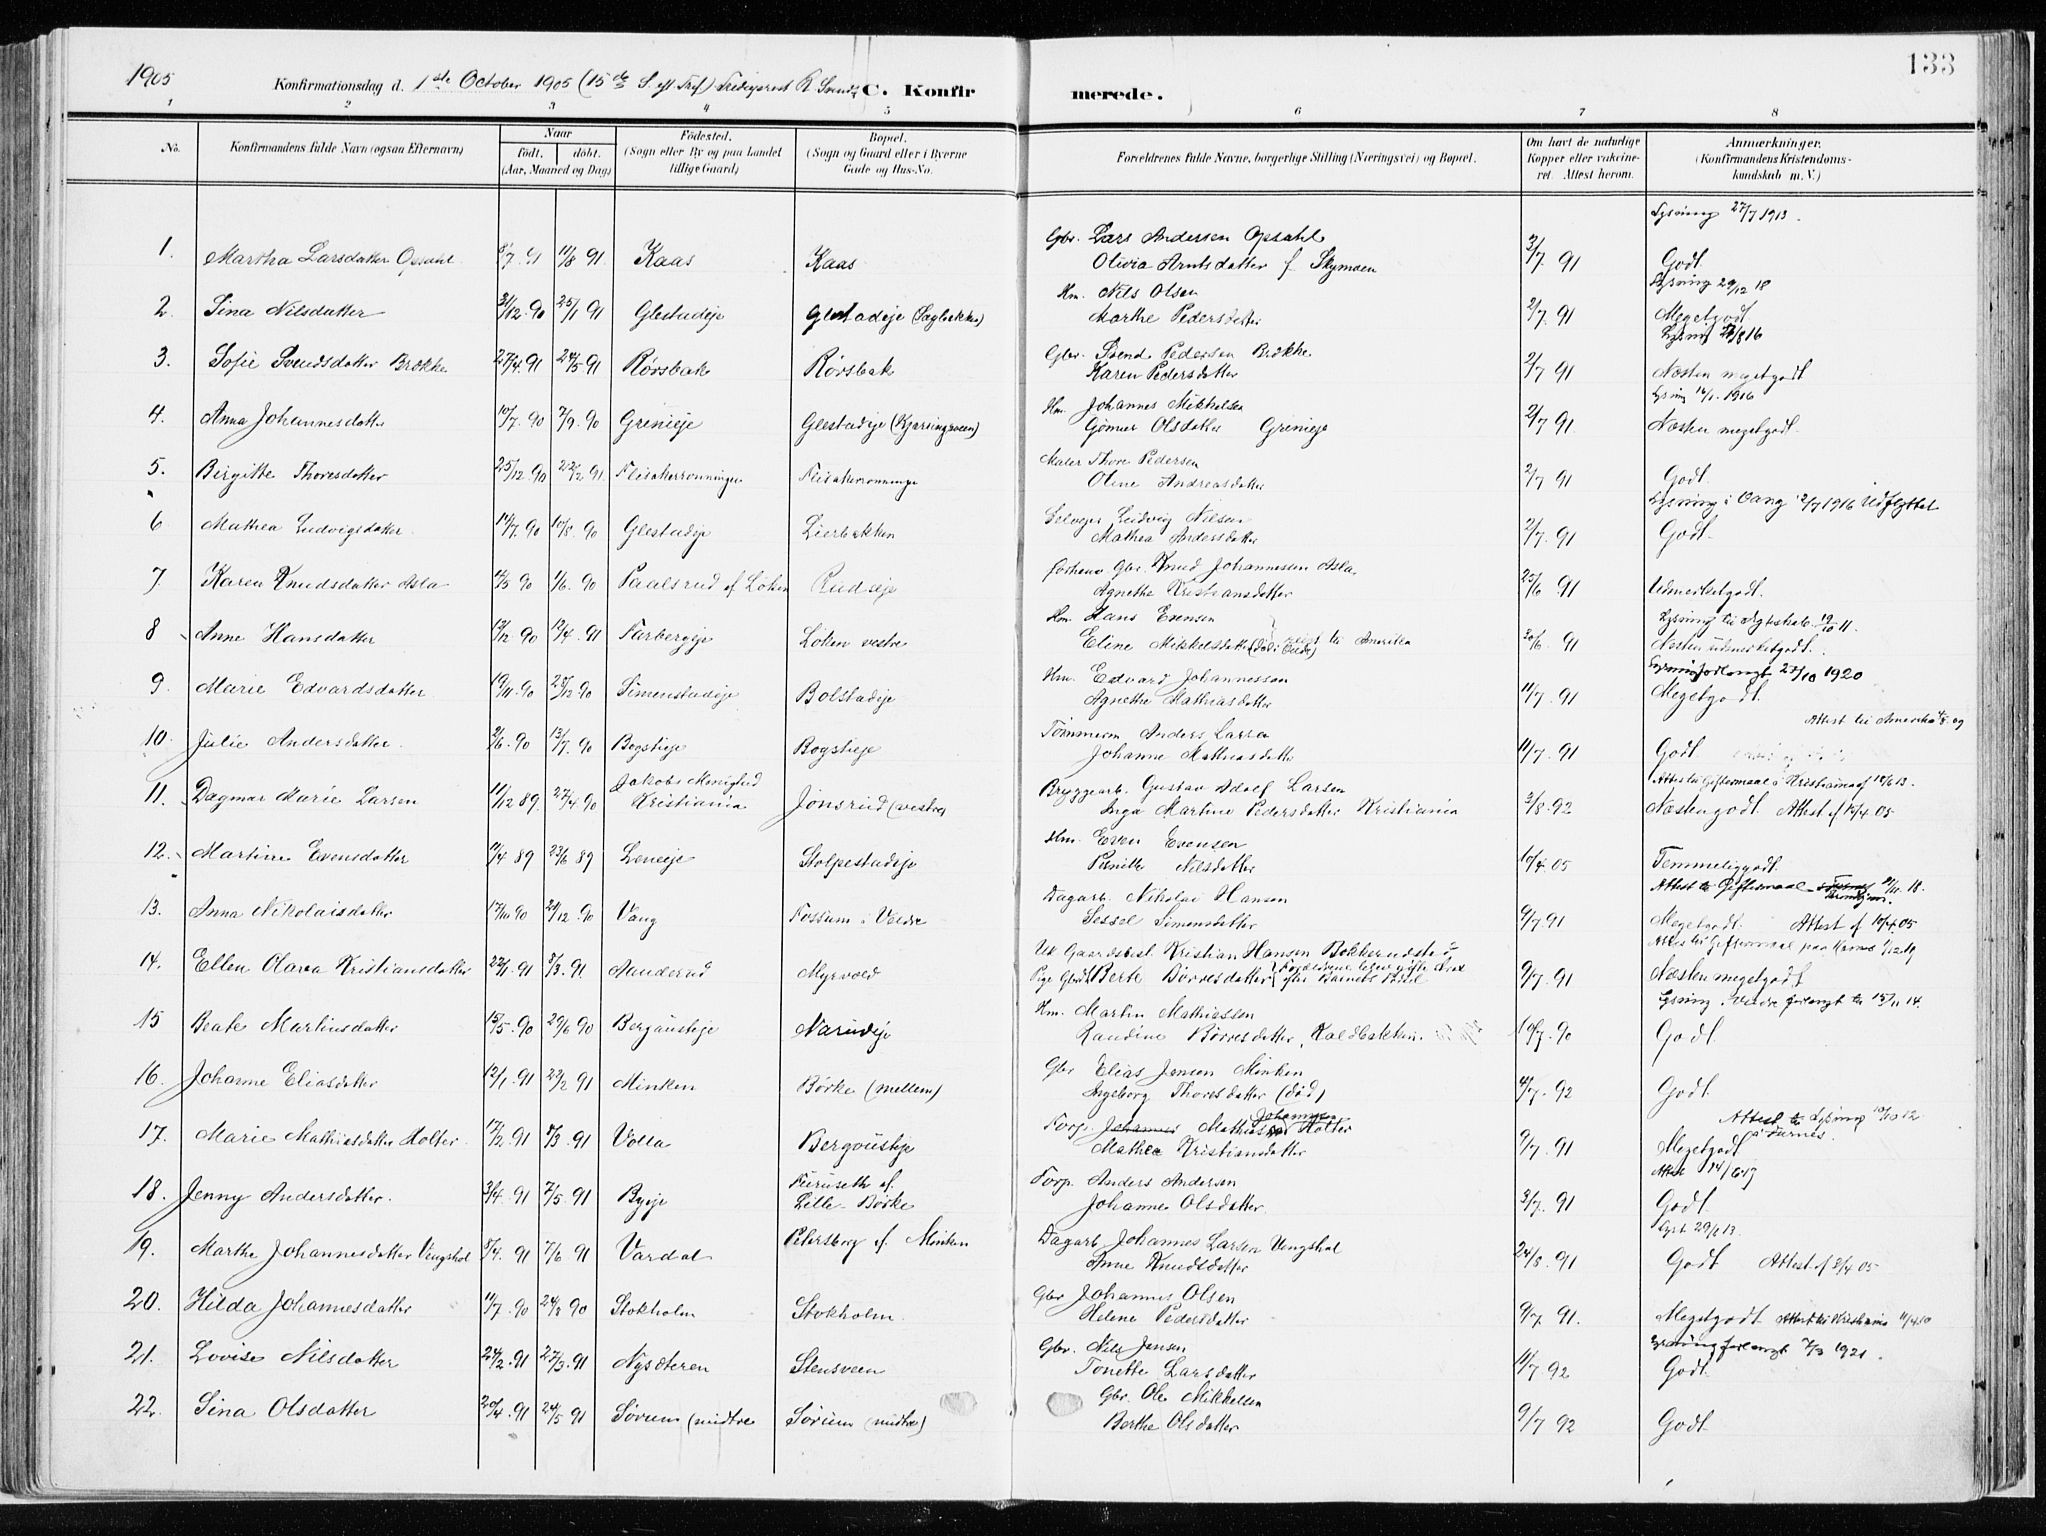 133
1905
Konfirmationsdag d. 1ste October 1905 (15de S. eft Tref) C. Konfirmerede.
1 2 3 4 5 6 7 8
No.
Konfirmandens fulde Navn (ogsaa Efternavn)
Naar
født. døbt.
(Aar, Maaned og Dag)
Fødested.
(Sogn eller By og paa Landet
tillige Gaard)
Bopæl.
(Sogn og Gaard eller i Byerne
Gade og Hus-No.
Forældrenes fulde Navne, borgerlige Stilling (Næringsvei) og Bopæl.
Om havt de naturlige
Kopper eller vakcine-
ret. Attest herom.
Anmærkninger.
(Konfirmandens Kristendoms-
kundskab m. V.)
Lysning 27/7 1913.
1. Martha Larsdatter Opsahl 11/8 91 Kaas Kaas Gbr. Lars Andersen Opsahl
Olivia Arntsdatter f Skymoen 3/7 91 Godt
Lysning 29/12 18
2. Sina Nilsdatter 31/12 90 25/1 91 Glestadeje Glestadeje (Sagbakken) Hm. Nils Olsen
Marthe Pedersdatter 2/7. 91 Megetgodt
3. Sofie Svendsdatter Brokke 27/4. 91 24/5 91 Rørsbak Rørsbak Gbr. Svend Pedersen Brokke
Karen Pedersdatter 2/7 91 Næsten megetgodt
4. Anna Johannesdatter 10/7. 90 7/9. 90 Grenieje Glestadeje Hm. Johannes Mikkelsen
Olsdatter Grenieje 2/7 91 Næsten megetgodt.
5. Birgitte Thoresdatter 25/12. 90 22/2 91. Flisakerrønningen Flisakerrønningen Maler Thore Pedersen
Oline Andreasdatter 2/7 91 Godt
Lysning i Vang 2/7 1916 Udflyttet
6 Mathea Ludvigsdatter 14/7. 90 10/8. 90 Glestadeje Lierbakken Selvejer Ludvig Nilsen
Mathea Andersdatter 2/7. 91 Godt
7 Karen Knudsdatter Asla 90 1/6. 90 Paalsrud af Løken Rudseje Forhenv. Gbr. Knud Johannesen Asla
Agnethe Kristiansdatter 25/6 91 Udmerketgodt.
8 Anne Hansdatter 12/12 90 12/4. 91 Farbergeje Løken vestre Hm. Hans Evensen
Eline Mikkelsdatter til Amerika 30/6 91 Næsten udmerketgodt.
9 Marie Edvardsdatter 19/11. 90 90 Simenstadeje Bolstadeje Hm. Edvard Johannessen
Agnethe Mathiasdatter 11/7. 91 Megetgodt
10. Julie Andersdatter. 2/6. 90 13/7. 90 Bogstieje Bogstieje Tømmerm Anders Larsen
Johanne Mathiasdatter 11/7. 91 Godt
11. Dagmar Marie Larsen 11/12 89. 27/4 90 Jakobs Menighed
Kristiania Jønsrud (vestre) Bryggearb. Gustav Adolf Larsen
Inga Martine Pedersdatter Kristiania 3/8. 92 Næstengodt. Attest af 12/4. 05
12. Martine Evensdatter 11/4 89 23/6 89 Leneeje Stolpestadeje Hm. Even Evensen
Nilsdatter 10/4. 05 Temmeliggodt.
13. Anna Nikolaisdatter 17/10 90 26/12. 90 Vang Fossum i Veldre Dagarb. Nikolai Hansen
Sessel Simensdatter 9/7. 91 Megetgodt. Attest af 10/4. 05
14. Ellen Olava Kristiansdatter 22/1. 91 8/3. 91. Aanderud Myrvold Uk Gaardsbest. Kristian Hansen
Berte Børresdatter 9/7. 91 Næsten megetgodt
15 Beate Martinsdatter 15/5. 90 29/6 90 Bergausteje Narudeje Hm. Martin Mathiassen
Randine Børresdatter, Kaldbakken. 10/7. 90 Godt
16. Johanne Eliasdatter 12/1. 91 22/2 91 Minken Børke (mellem) Gbr Elias Jensen Minken
Ingeborg Thoresdatter (død) 4/7. 92 Godt
17. Marie Mathiasdatter Holter. 17/2. 91 8/3. 91 Volla Bergousteje Forp. Johannes Mathiassen Holter
Johannesen
Mathea Kristiansdatter 9/7. 91 Megetgodt
18. Jenny Andersdatter. 3/4. 91 7/5. 91 Byeje Furuseth af
Lille-Børke Forp. Anders Andersen
Johanne Olsdatter. 3/7. 91 Godt.
19. Marthe Johannesdatter Vengshol 8/4. 91 7/6 91 Vardal Petersborg af Minken Dagarb. Johannes Larsen Vengshol
Anne Knudsdatter 24/8. 91 Godt Attest af 8/4. 05
20. Hilda Johannesdatter 11/7. 90 24/8 90 Stokholm Stokholm. Gbr Johannes Olsen
Helene Pedersdatter 9/7. 91. Megetgodt. Attest til Kristiania 11/4. 10
Lysning forlangt 7/3 1921.
21. Lovise Nilsdatter 24/2. 91 27/3. 91 Nysæteren Stensveen Gbr. Nils Jensen
Tonette Larsdatter 11/7 92 Godt.
22. Sina Olsdatter 20/4. 91 24/5 91 Sørum (midtre Sørum (midtre) Gbr. Ole Mikkelsen
Berthe Olsdatter 9/7 92 Godt